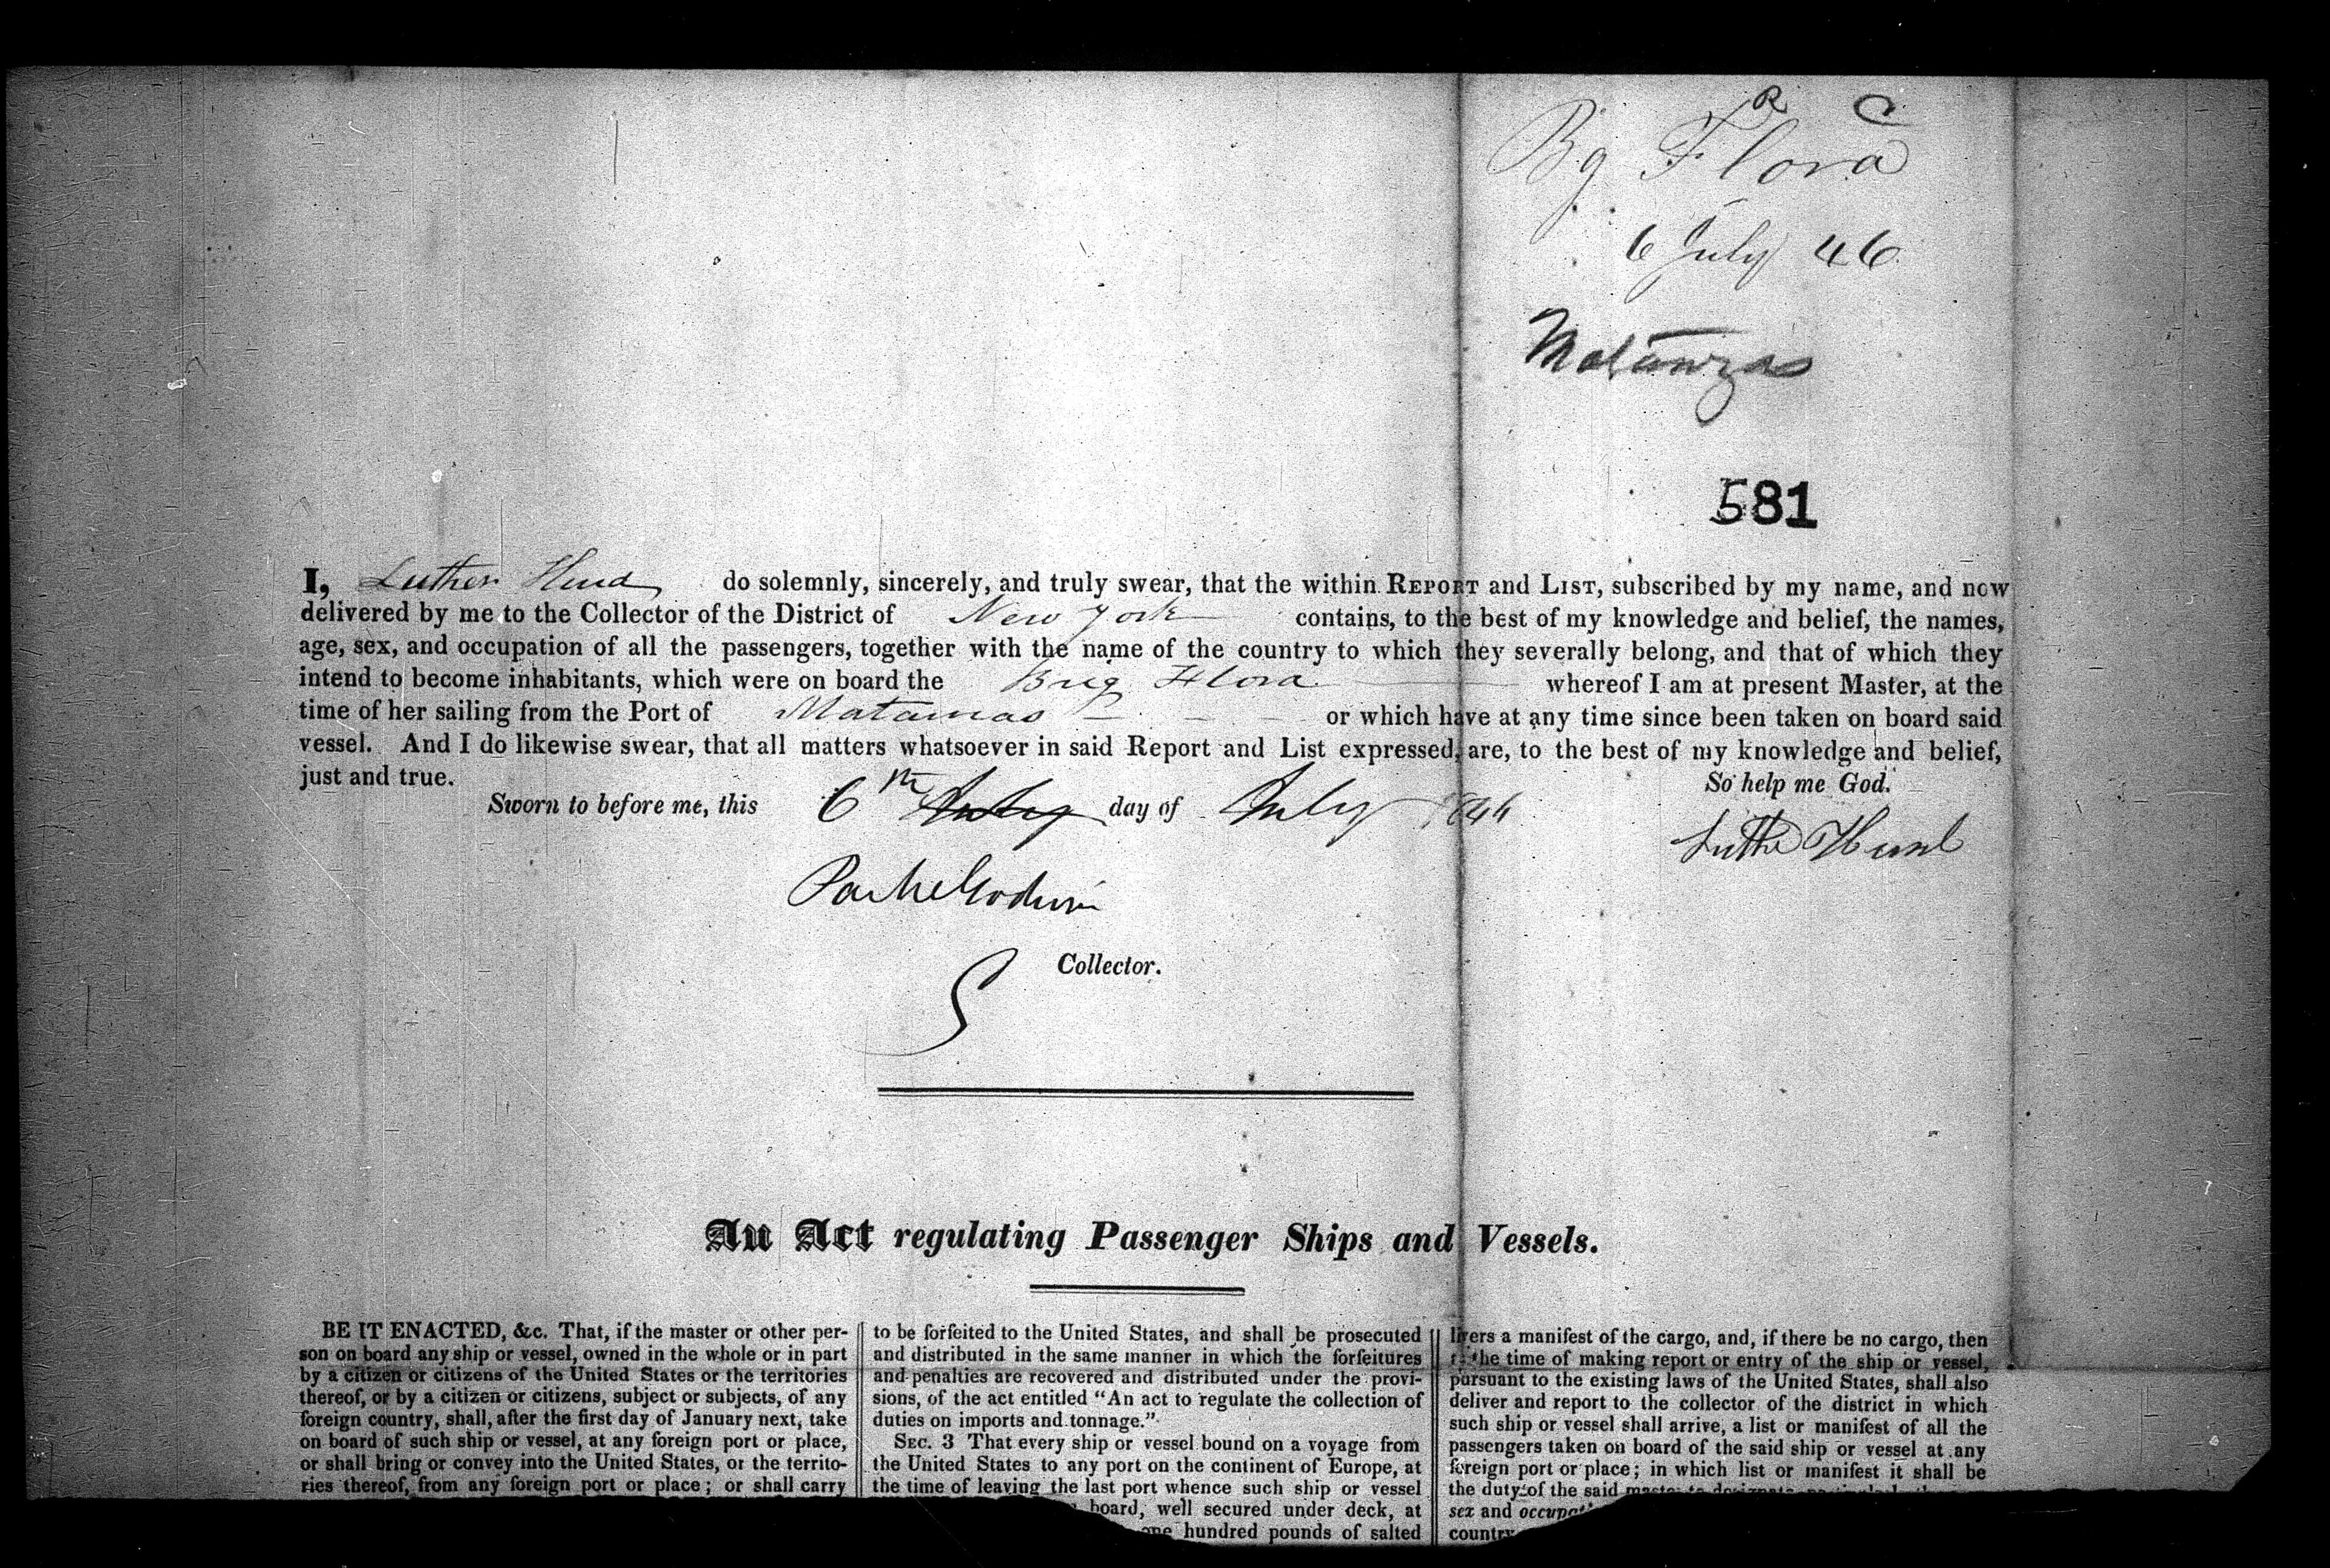 R C
Bg Flora
6 July 46
Matanzas
581
I, Luther Hurd do solemnly, sincerely, and truly swear, that the within REPORT and LIST, subscribed by my name, and now
delivered by me to the Collector of the District of New York contains, to the best of my knowledge and belief, the names,
age, sex, and occupation of all the passengers, together with the name of the country to which they severally belong, and that of which they
intend to become inhabitants, which were on board the Brig Flora whereof I am at present Master, at the
time of her sailing from the Port of Matanzas or which have at any time since been taken on board said
vessel. And I do likewise swear, that all matters whatsoever in said Report and List expressed, are, to the best of my knowledge and belief,
just and true. So help me God.
Sworn to before me, this 6th July day of July 1846
Luther Hurd
Parke Godwin
Collector.
An Act regulating Passenger Ships and Vessels.
BE IT ENACTED, &c. That, if the master or other per-
son on board any ship or vessel, owned in the whole or in part
by a citizen or citizens of the United States or the territories
thereof, or by a citizen or citizens, subject or subjects, of any
foreign country, shall, after the first day of January next, take
on board of such ship or vessel, at any foreign port or place,
or shall bring or convey into the United States, or the territo-
ries thereof, from any foreign port or place; or shall carry
to be forfeited to the United States, and shall be prosecuted
and distributed in the same manner in which the forfeitures
and penalties are recovered and distributed under the provi-
sions, of the act entitled "An act to regulate the collection of
duties on imports and tonnage."
SEC. 3 That every ship or vessel bound on a voyage from
the United States to any port on the continent of Europe, at
the time of leaving the last port whence such ship or vessel
board, well secured under deck, at
one hundred pounds of salted
livers a manifest of the cargo, and, if there be no cargo, then
the time of making report or entry of the ship or vessel,
pursuant to the existing laws of the United States, shall also
deliver and report to the collector of the district in which
such ship or vessel shall arrive, a list or manifest of all the
passengers taken on board of the said ship or vessel at any
foreign port or place; in which list or manifest it shall be
the duty of the said
sex and
country